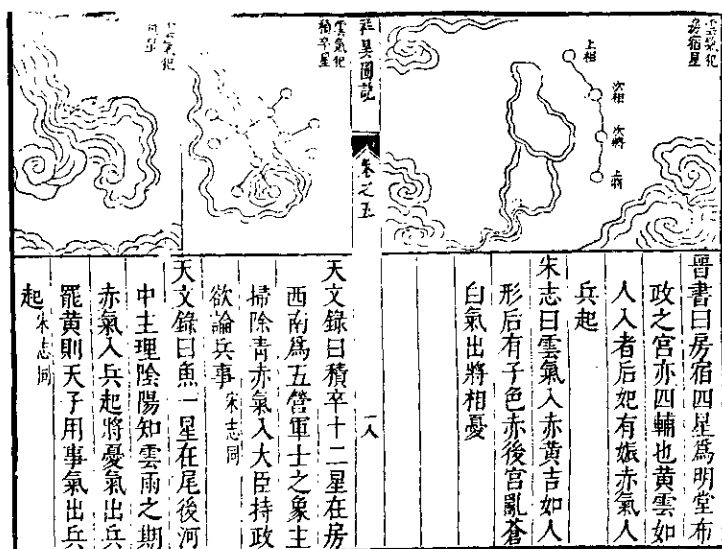 雲氣犯
房宿星
上相
次相
次將
上將
晉書曰房宿四星爲明堂布
政之宮亦四輔也黃雲如
人入者后妃有娠赤氣人
兵起
宋志曰雲氣入赤黃吉如人
形后有子色赤後宮亂蒼
白氣出將相憂
祥異圖說
卷之五
一八
雲氣犯
積卒星
天文錄曰積卒十二星在房
西南爲五營軍士之象主
掃除青赤氣入大臣持政
欲論兵事宋志同
雲氣犯
天文錄曰魚一星在尾後河
中主理陰陽知雲雨之期
赤氣入兵起將憂氣出兵
罷黃則天子用事氣出兵
起宋志同